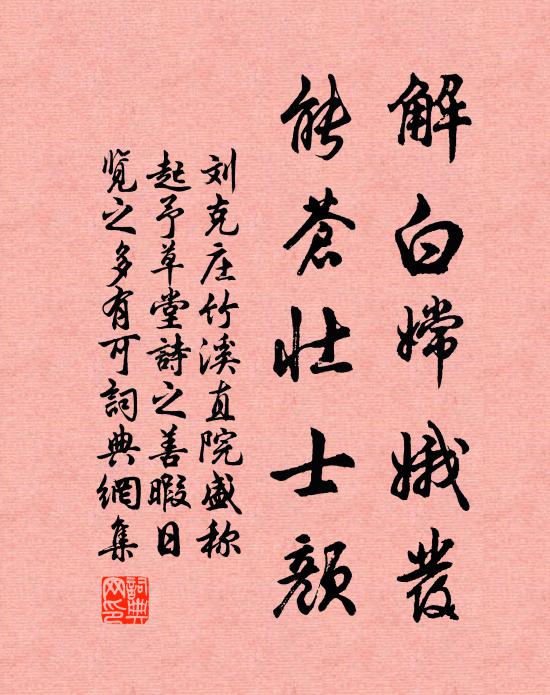 解白嫦娥发
能苍壮士颜
刘克庄竹溪直院盛称
起予草堂詩之善暇日
览之多有可詞典網集
詞典網印